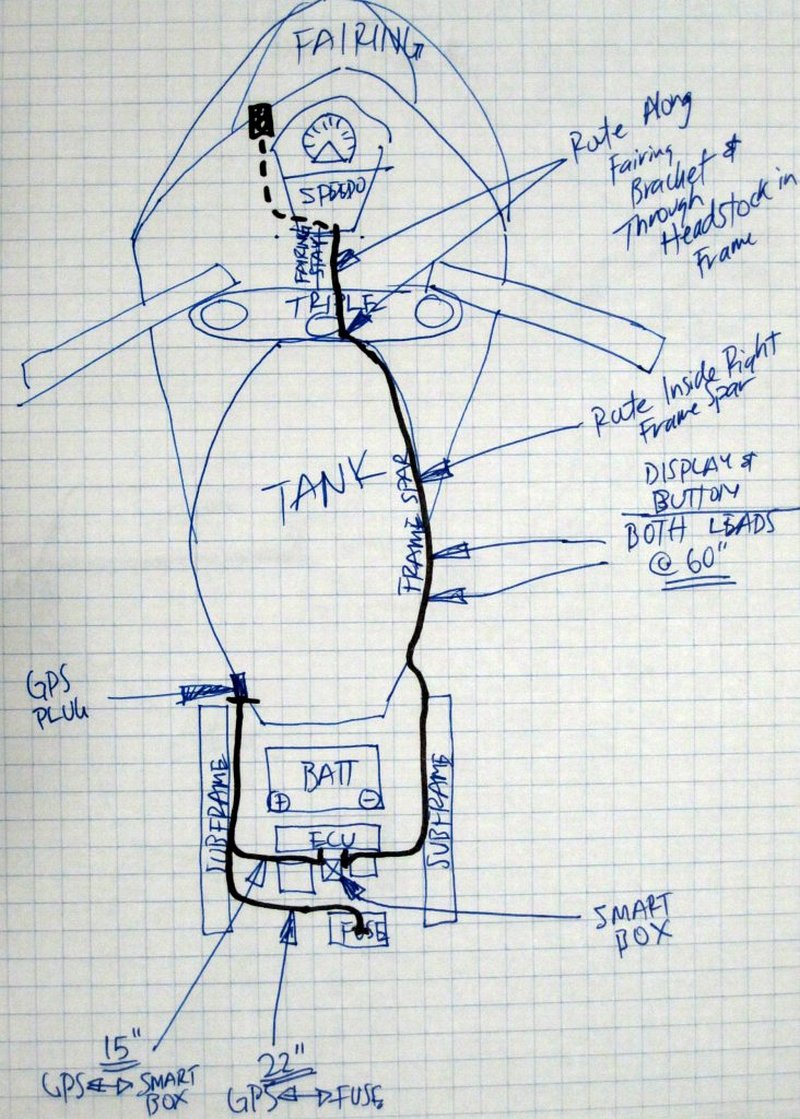 FAIRING
SPEEDO
FAIRING
STAY
TRIPLE
Rute Along
Fairing
Bracket &
Through
Headstock in
Frame
Rute Inside Right
Frame Spar
TANK
FRAME SPAR
DISPLAY &
BUTTON
BOTH LEADS
@ 60"
GPS
PLUG
SUBFRAME
BATT
+ -
ECU
SUBFRAME
FUSE
SMART
BOX
15"
GPS ↔ SMART
BOX
22"
GPS ↔ FUSE